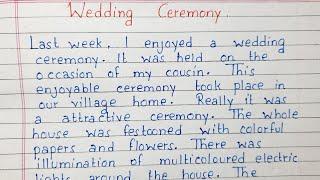 Wedding Ceremony.
Last week, I enjoyed a wedding
ceremony. It was held on the
occasion of my cousin. This
enjoyable ceremony took place in
our village home. Really it was
a attractive ceremony. The whole
house was festooned with colorful
papers and flowers. There was
illumination of multicoloured electric
lights around the house. The